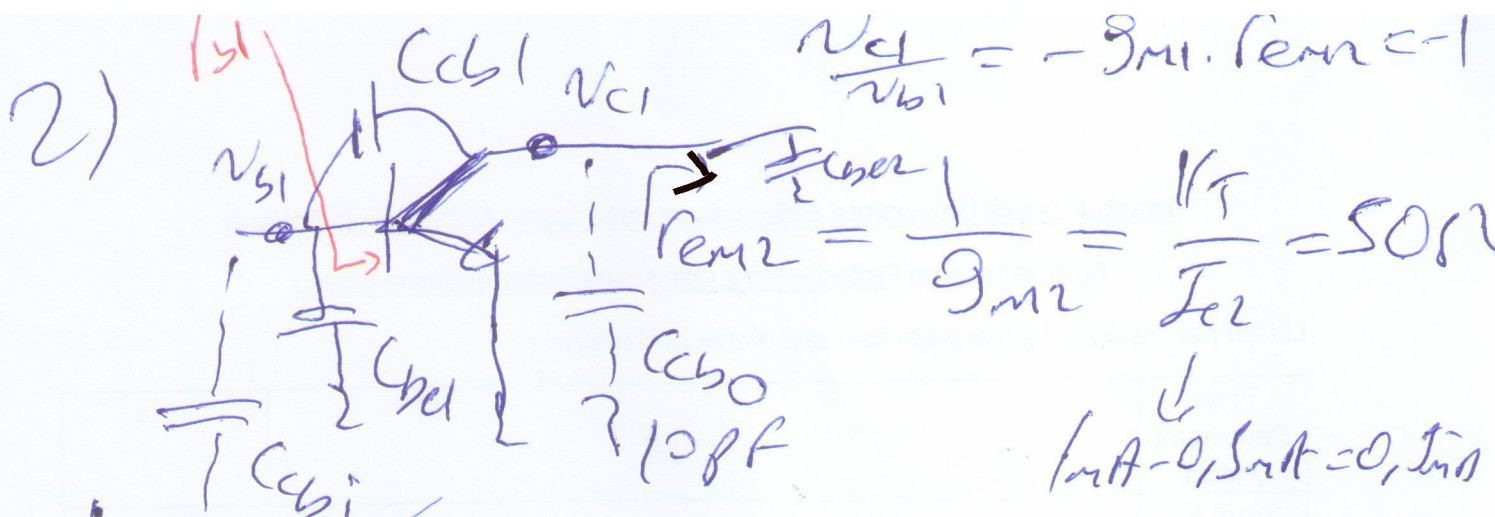 2)
r_b1
C_cb1
v_c1
v_c1 / v_b1 = - g_m1 . r_em2 = -1
v_b1
C_be2
r_em2 = 1 / g_m2 = V_T / I_c2 = 50Ω
C_be1
C_cb0
10pF
C_cbi
1mA - 0,5mA = 0,5mA